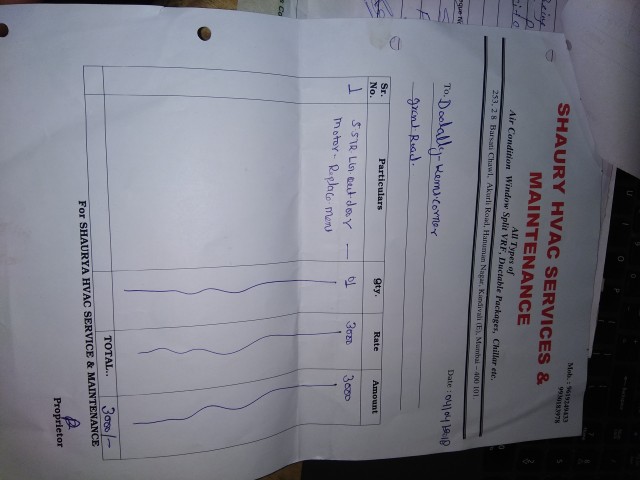 Mob. : 9619249433
9990183978
SHAURY HVAC SERVICES &
MAINTENANCE
All Types of
Air Condition Window Split VRF, Ductable Packages, Chillar etc.
253, 2 8 Barsati Chawl, Akurli Road, Hanuman Nagar, Kandivali (E), Mumbai – 400 101
Date :
To, Doolally - Kemscorner
grant Road.
Sr. No. Particulars Qty. Rate Amount
1 5.5TR Unit out door — 01 3000 3000
Motor - Replacement
TOTAL.. 3000/-
For SHAURYA HVAC SERVICE & MAINTENANCE
Proprietor